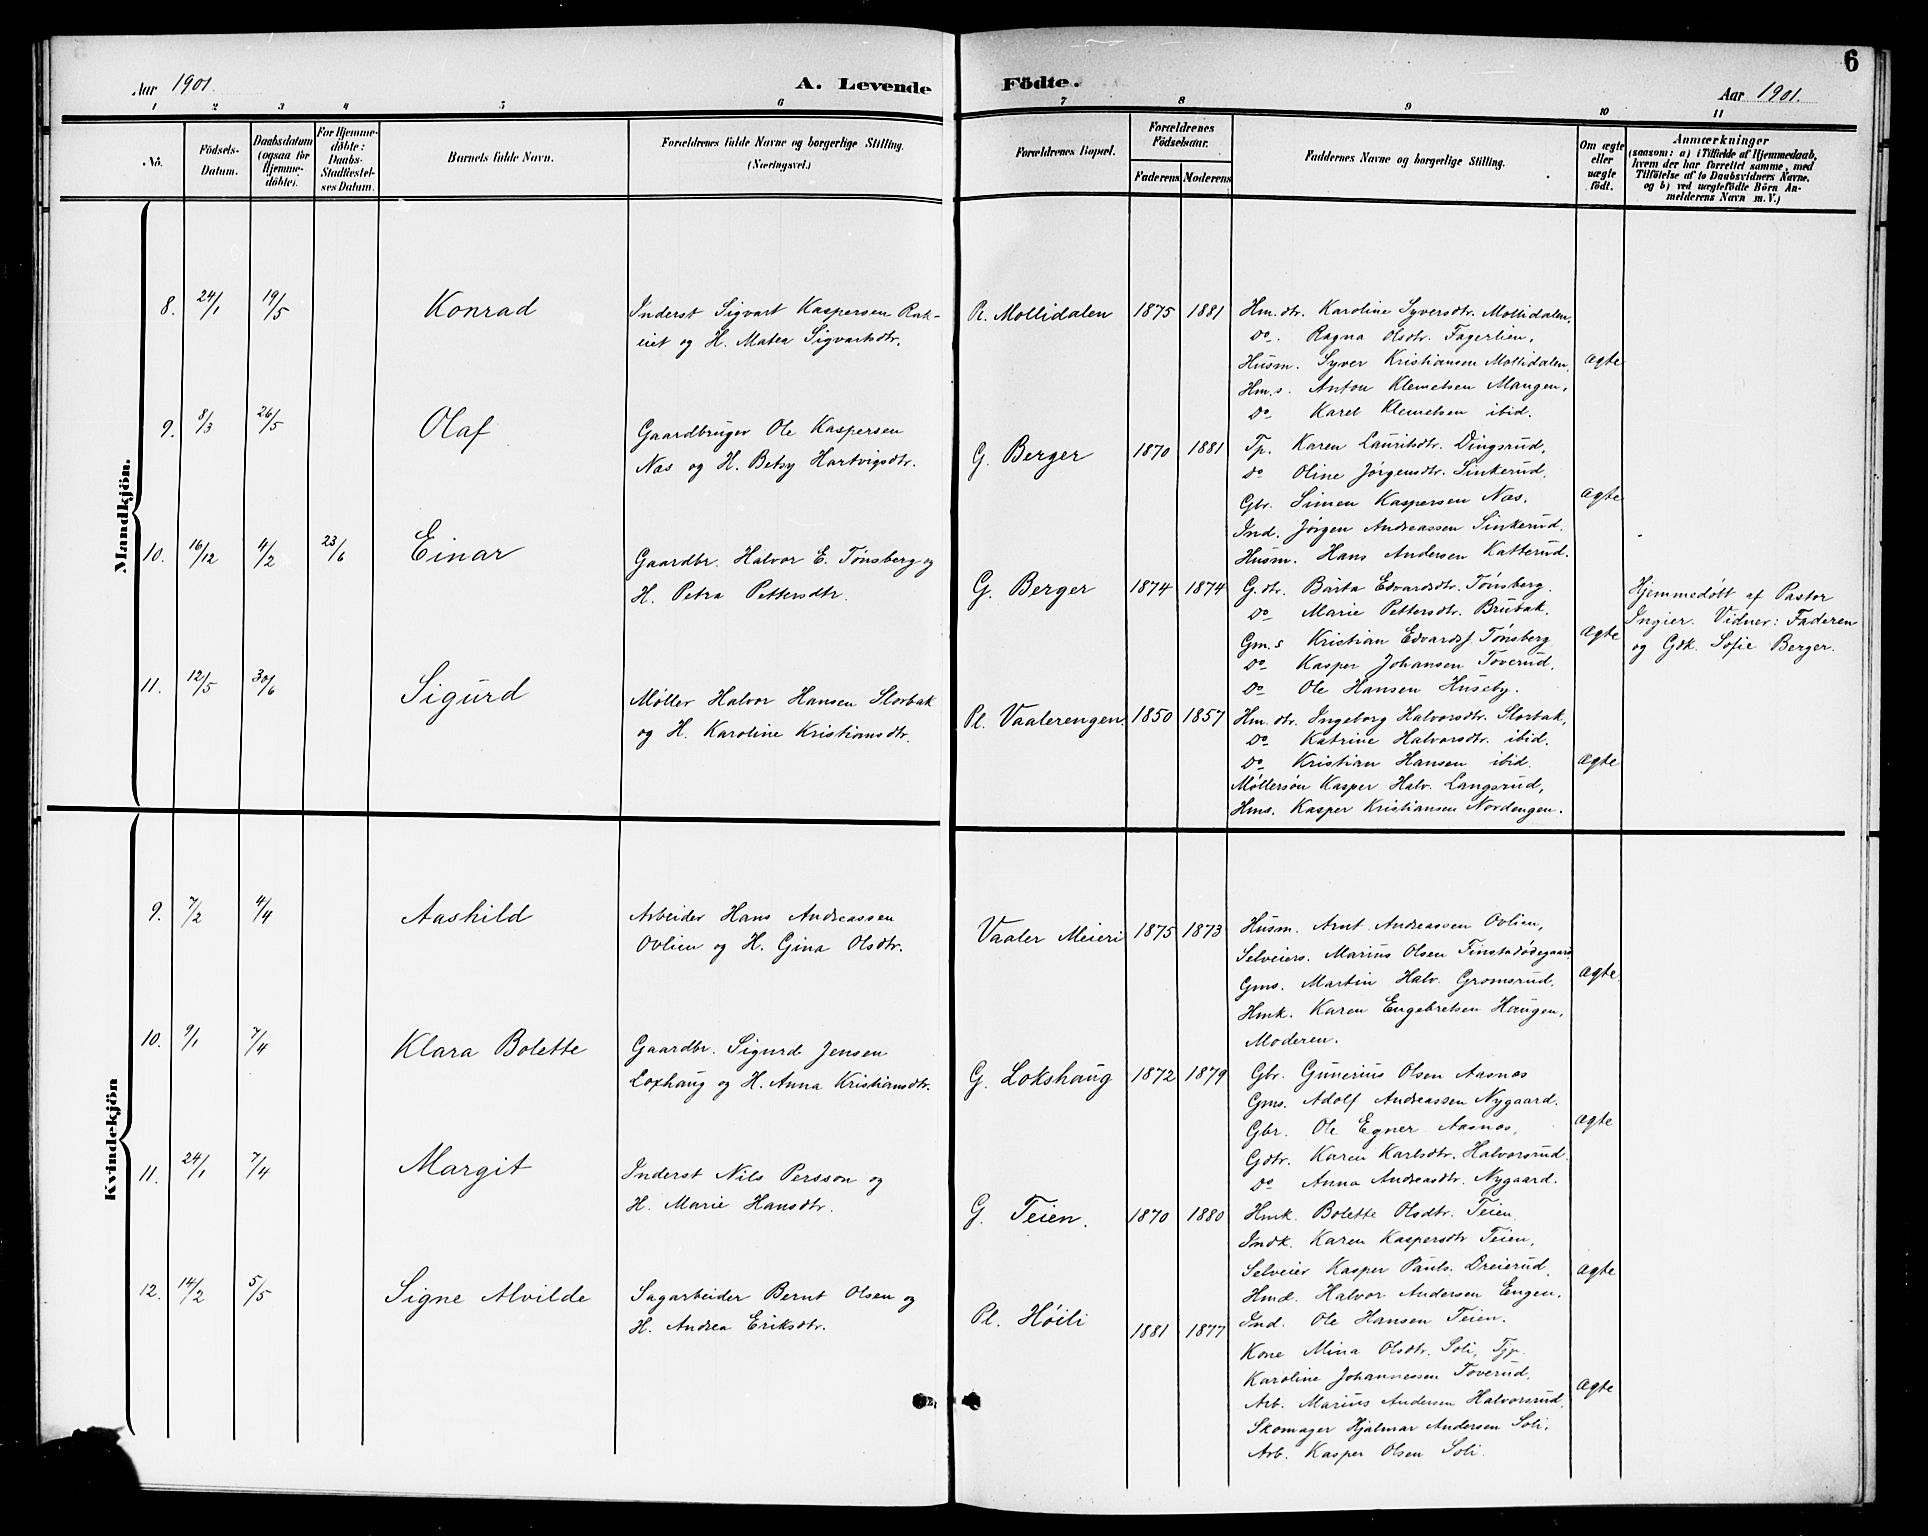 6
Aar 1901.
A. Levende
Födte.
Aar 1901.
1 2 3 4 5 6 7 8 9 10 11
No.
Födsels-
Datum.
Daabsdatum
(ogsaa for
Hjemme-
döbte).
For Hjemme-
döbte:
Daabs-
Stadfæstel-
ses Datum.
Barnets fulde Navn.
Forældrenes fulde Navne og borgerlige Stilling.
(Næringsvei.)
Forældrenes Bopæl.
Forældrenes
Födselsaar.
Faderens
Moderens
Faddernes Navne og borgerlige Stilling.
Om ægte
eller
uægte
födt.
Anmærkninger
(saasom: a) i Tilfælde af Hjemmedaab,
hvem der har forrettet samme, med
Tilföielse af to Daabsvidners Navne,
og b) ved uægtefödte Börn An-
melderens Navn m. V.)
Mandkjön.
8. 24/1 19/5
Konrad
Inderst Sigvart Kaspersen Rak-
eiet og H. Matea Sigvartsdtr.
Pl. Mollidalen 1875 1881
Hm.dtr. Karoline Syversdtr. Mollidalen,
Do. Ragna Olsdtr. Fagerlien,
Husm. Syver Kristiansen Mollidalen,
Hm.s. Anton Klemetsen Mangen,
Do Karel Klemetsen ibid.
Ægte
9. 8/3 26/5
Olaf
Gaardbruger Ole Kaspersen
Næs og H. Betsy Hartvigsdtr.
G. Berger 1870 1881
Tp. Karen Lauritsdtr. Dingsrud,
Do Oline Jørgensdtr. Sinkerud,
Gbr. Simen Kaspersen Næs.
Ind. Jørgen Andreassen Sinkerud.
Husm. Hans Andersen Katterud.
Ægte
10. 16/12 4/2 23/6
Einar
Gaardbr. Halvor E. Tønsberg og
H. Petra Pettersdtr.
G. Berger 1874 1874
G.dtr. Bärta Edvardsdtr. Tønsberg.
Do Marie Pettersdtr. Brubak.
Gm.s Kristian Edvards. Tønsberg
Do Kasper Johansen Toverud,
Do Ole Hansen Huseby.
Ægte
Hjemmedøbt af Pastor
Ingier. Vidner: Faderen
og Gdk. Sofie Berger.
11. 12/5 30/6
Sigurd
Møller Halvor Hansen Slorbak
og H. Karoline Kristiansdtr.
Pl. Vaalerengen. 1850 1857
Hm. dtr. Ingeborg Halvorsdtr. Slorbak,
Do Katrine Halvorsdtr. ibid.
Do Kristian Hansen ibid.
Møllersøn Kasper Halv. Langsrud,
Hms. Kasper Kristiansen Nordengen.
Ægte
Kvindekjön
9. 7/2 4/4
Aashild
Arbeider Hans Andreassen
Ovlien og H. Gina Olsdtr.
Vaaler Meieri 1875 1873
Husm. Arnt Andreassen Ovlien,
Selveiers. Marius Olsen Finstadødegaard
Gms. Martin Halv. Gromsrud,
Hmk. Karen Engebretsen Haugen,
Moderen.
Ægte
10. 9/1 7/4
Klara Bolette
Gaardbr. Sigurd Jensen
Loxhaug og H. Anna Kristiansdtr.
G. Lokshaug 1872 1879
Gbr. Gunerius Olsen Aasnæs
Gms. Adolf Andreassen Nygaard.
Gbr. Ole Egner Aasnæs,
Gdtr. Karen Karlsdtr. Halvorsrud.
Do Anna Andreasdtr. Nygaard.
Ægte
11. 24/1 7/4
Margit
Inderst Nils Persson og
H. Marie Hansdtr.
G. Teien. 1870 1880
Hmk. Bolette Olsdtr. Teien
Indk. Karen Kaspersdtr Teien,
Selveier Kasper Pauls. Dreierud,
Hmd. Halvor Andersen Engen,
Ind. Ole Hansen Teien.
Ægte
12. 14/2 5/5
Signe Alvilde
Sagarbeider Bernt Olsen og
H. Andrea Eriksdtr.
Pl. Høili 1881 1877
Kone Mina Olsdtr. Soli, Tjp.
Karoline Johannessen Toverud.
Arb. Marius Andersen Halvorsrud,
Skomager Hjalmar Andersen Soli,
Arb. Kasper Olsen Soli.
Ægte